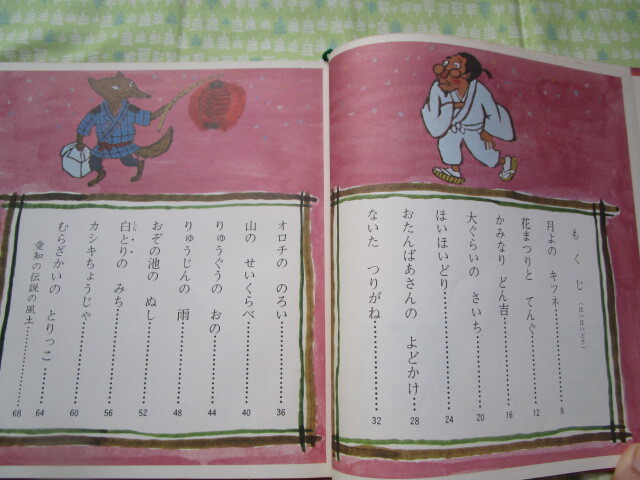 もくじ（ほいほいどり）
月よの キツネ……8
花まつりと てんぐ……12
かみなり どん吉……16
大ぐらいの さいち……20
ほいほいどり……24
おたんばあさんの よどかけ……28
ないた つりがね……32
オロチの のろい……36
山の せいくらべ……40
りゅうぐうの おの……44
りゅうじんの 雨……48
おぞの池の ぬし……52
白とりの みち……56
カシキちょうじゃ……60
むらざかいの とりっこ……64
愛知の伝説の風土……68